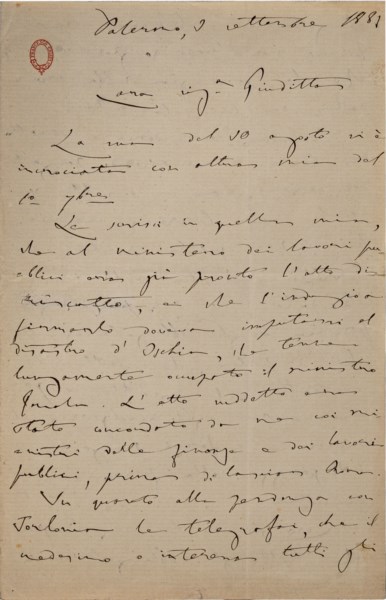 Palermo, 3 settembre 1883
Cara sig.ª Giuditta
La sua del 30 agosto si è
incrociata con altra mia del
1º 7bre
Le scrissi in quella mia,
che al ministero dei lavori pu
bblici era già pronto l'atto di
riscatto, e che l'indugio a
firmarlo doveva imputarsi al
disastro d'Ischia, che tenne
lungamente occupato il ministro
Genala. L'atto suddetto era
stato concordato da me coi mi
nisteri delle finanze e dei lavori
pubblici, prima di lasciar Roma.
In quanto alla pendenza con
Torlonia le telegrafai, che il
medesimo o interessa tutti gli